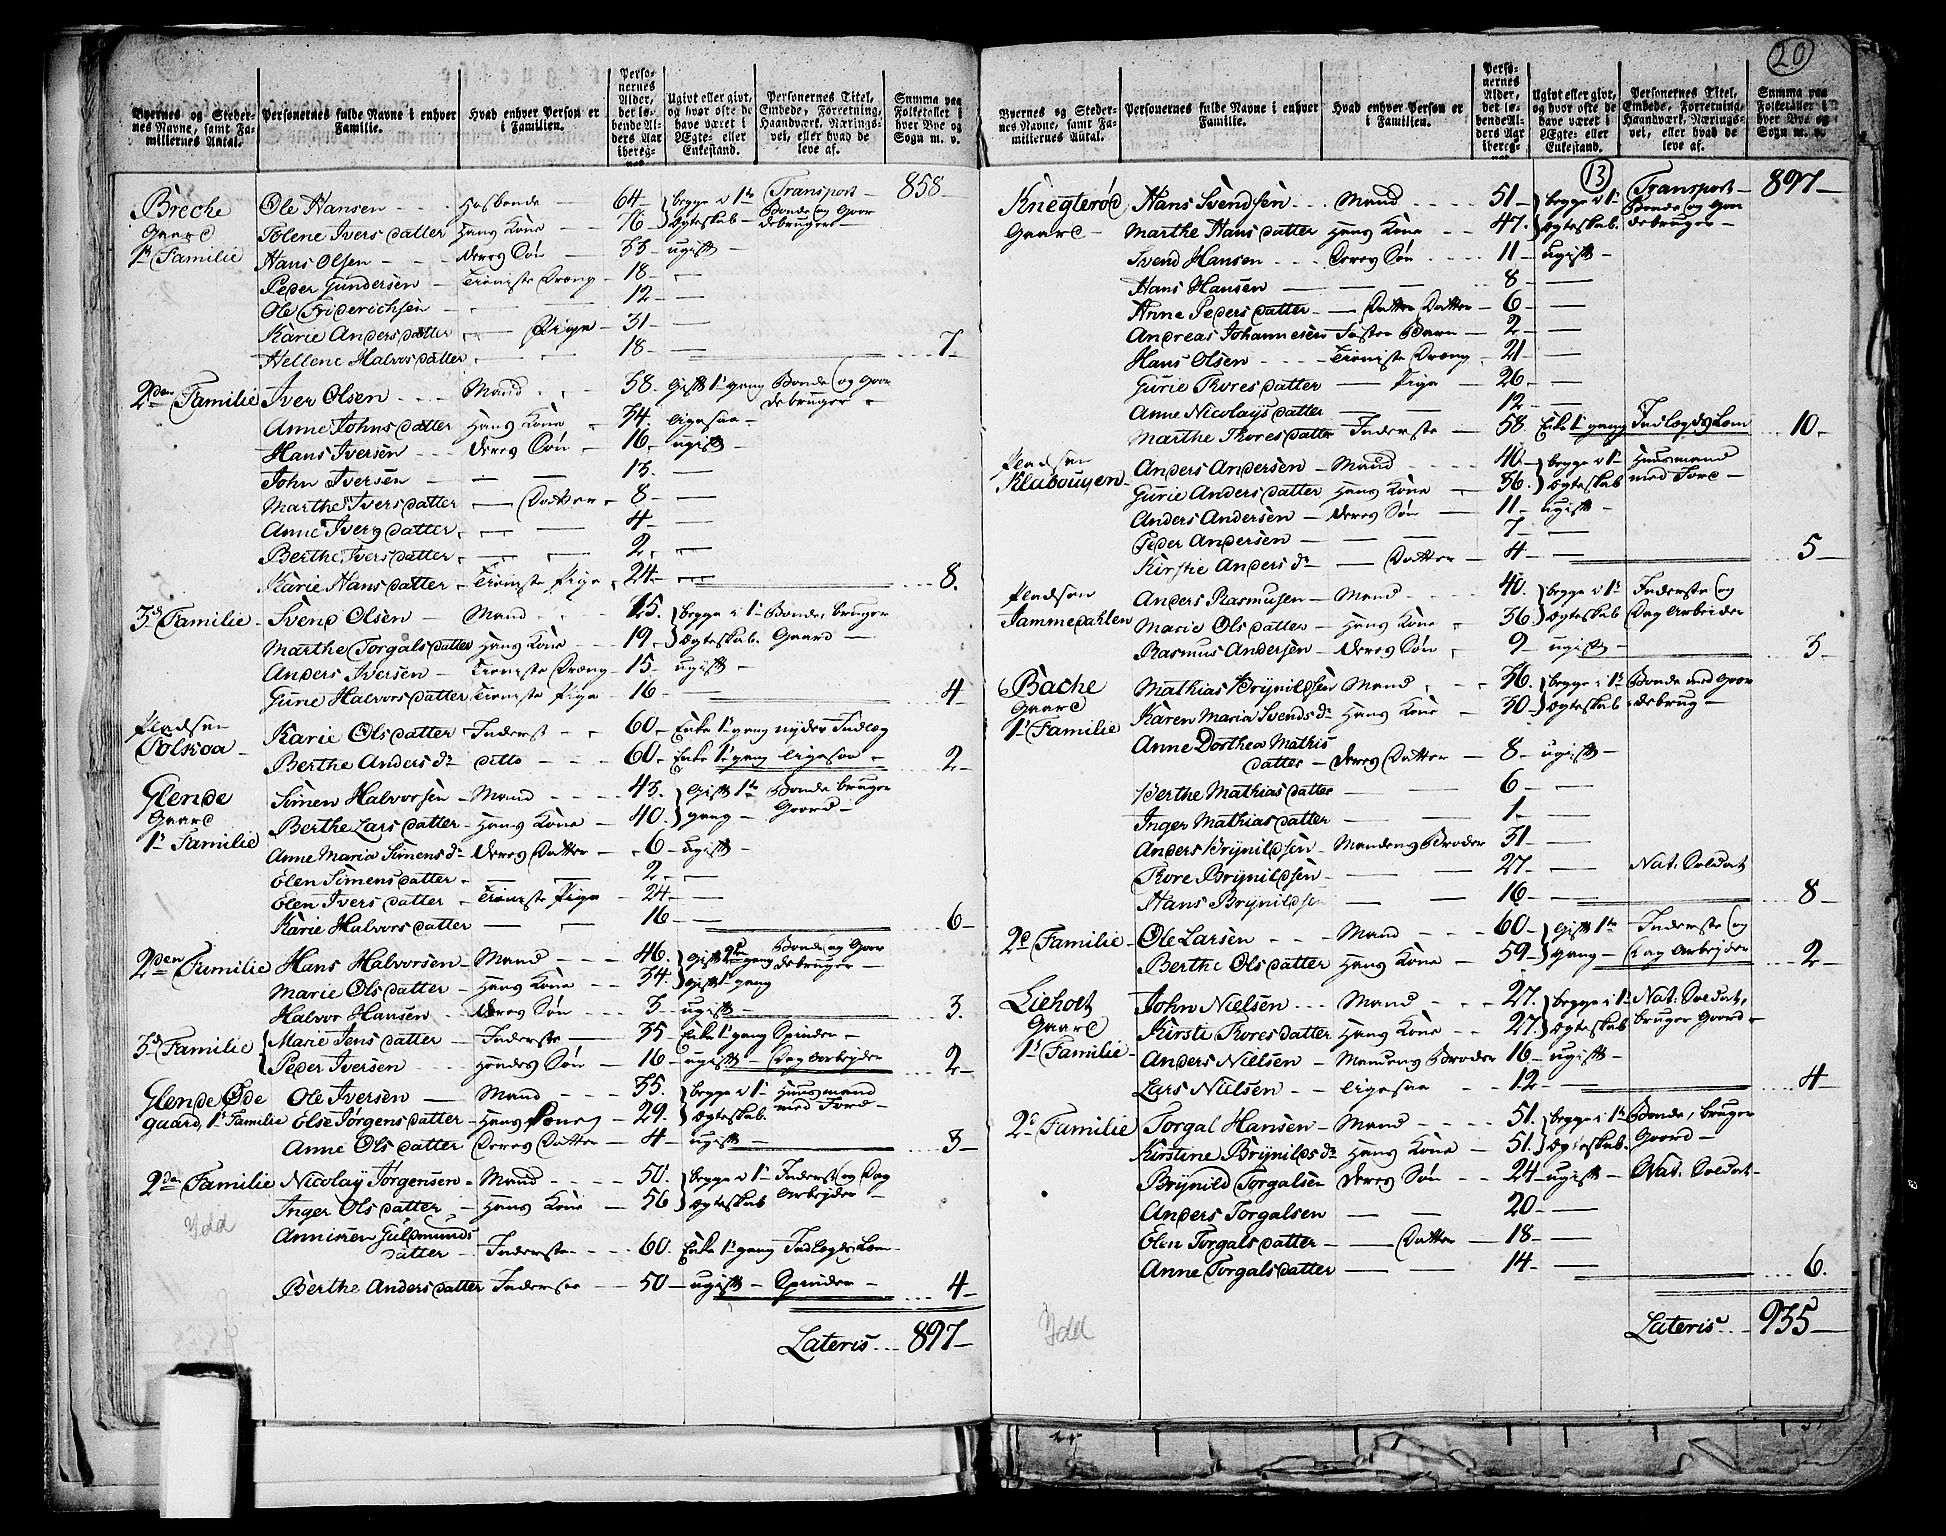 20
Byernes og Stedernes Navne, samt Familiernes Antal.
Personernes fulde Navne i enhver Familie.
Hvad enhver Person er i Familien.
Personernes Alder, det løbende Alders Aar iberegnet
Ugivt eller givt, og hvor ofte de have været i Ægte- eller Enkestand.
Personernes Titel, Embede, Forretning, Haandværk, Næringsvei, eller hvad de leve af.
Summa paa Folketallet i hver Bye og Sogn m. v.
Transport 858
Breche Ole Hansen Hosbonde 64 begge i 1te Bonde og Gaar
Gaard Tolene Ivers datter Hans Kone 76 Ægteskab debruger
1te Familie Hans Olsen deres Søn 33 ugift
Peder Gundersen Tieneste Dreng 18
Ole Friderichsen 12
Karie Anders datter Pige 31
Hellene Halvors datter 18 7
2den Familie Iver Olsen Mand 38 gift 1te gang Bonde og Gaar
debruger
Anne Johns datter Hans Kone 34 ligesaa
Hans Iversen deres Søn 16 ugift
John Iversen 13
Marthe Ivers datter Datter 8
Anne Ivers datter 4
Berthe Ivers datter 2
Karie Hans datter Tieneste Pige 24 8
3de Familie Svend Olsen Mand 25 begge i 1te Bonde, bruger
Marthe Torgals datter Hans Kone 19 Ægteskab. Gaard
Anders Iversen Tieneste Dreng 15 ugift
Gurie Halvors datter Tieneste Pige 16 4
Pladsen Karie Ols datter Inderst 60 Enke 1te gang nyder Indlæg
Berthe Anders dr ditto 60 Enke 1te gang ligesaa 2
Glende Simen Halvorsen Mand 43 gift 1te Bonde bruger
Gaard Berthe Lars datter Hans Kone 40 gang Gaard
1te Familie Anne Maria Simens dr deres Datter 6 ugift
Elen Simens datter 2
Elen Ivers datter Tieneste Pige 24
Karie Halvors datter 16 6
2den Familie Hans Halvorsen Mand 46 gift 2den gang Bonde og Gaar
debruger
Marie Ols datter Hans Kone 34 gift 1te gang
Halvor Hansen deres Søn 3 ugift 3
3de Familie Marie Jens datter Inderste 35 Enke 1te gang Spinder
Peder Iversen Hendes Søn 16 ugift Dag Arbeyder 2
Glende Øde Ole Iversen Mand 35 begge i 1te Huusmand
gaard, 1te Familie Else Jørgens datter Hans Kone 29 Ægteskab. med Jord
Anne Ols datter Deres Datter 4 ugift 3
2den Familie Nicolay Jørgensen Mand 50 begge i 1te Inderst og Dag
Inger Ols datter Hans Kone 56 Ægteskab Arbeyder
Ydd
Annichen Guldmunds
datter Inderste 60 Enke 1te gang Indlægds Lem
Berthe Anders datter Inderste 50 ugift Spinder 4
Lateris 897
Byernes og Stedernes Navne, samt Familiernes Antal.
Personernes fulde Navne i enhver Familie.
Hvad enhver Person er i Familien.
Personernes Alder, det løbende Alders Aar iberegnet
Ugivt eller givt, og hvor ofte de have været i Ægte- eller Enkestand.
Personernes Titel, Embede, Forretning, Haandværk, Næringsvei, eller hvad de leve af.
Summa paa Folketallet i hver Bye og Sogn m. v.
13 Transport 897
Knegterød Hans Svendsen Mand 51 begge i 1te Bonde og Gaar
Gaard Marthe Hans datter Hans Kone 47 Ægteskab. debruger
Svend Hansen Deres Søn 11 ugift
Hans Hansen 8
Anne Peders datter Datter Datter 6
Andreas Johannesen Foster Barn 2
Hans Olsen Tieneste Dreng 21
Gurie Thores datter Pige 26
Anne Nicolays datter 12
Marthe Thores datter Inderste 58 Enke 1te gang Indlægds Lem 10
Pladsen Anders Andersen Mand 40 begge i 1te Huusmand
Klabougen Gurie Anders datter Hans Kone 36 Ægteskab med Jord
Anders Andersen deres Søn 11 ugift
Peder Andersen 7
Kirstie Anders dr Datter 4 5
Pladsen Anders Rasmusen Mand 40 begge i 1te Inderste og
Jammedahlen Marie Ols datter Hans Kone 36 Ægteskab Dag Arbeider
Rasmus Andersen deres Søn 9 ugift 3
Bache Mathias Brynildsen Mand 36 begge i 1te Bonde med Gaar
Gaard Karen Maria Svends dr Hans Kone 30 Ægteskab debrug
1te Familie Anne Dorthea Mathis
datter deres Datter 8 ugift
Berthe Mathias datter 6
Inger Mathias datter 1
Anders Brynildsen Mandens Broder 31
Thore Brynildsen 27 Nat: Soldat
Hans Brynildsen 16 8
2de Familie Ole Larsen Mand 60 gift 1te Inderste og
Berthe Ols datter Hans Kone 59 gang Dag Arbeyder 2
Lieholt John Nielsen Mand 27 begge i 1te Nat: Soldat,
Gaard Kirsti Thores datter Hans Kone 27 Ægteskab bruger Gaard
1te Familie Anders Nielsen Mandens Broder 16 ugift
Lars Nielsen ligesaa 12 4
2de Familie Torgal Hansen Mand 51 begge i 1te Bonde, bruger
Kirstine Brynilds dr Hans Kone 51 Ægteskab. Gaard
Brynild Torgalsen deres Søn 24 ugift Nat: Soldat
Anders Torgalsen 20
Elen Torgals datter Datter 18
Anne Torgals datter 14 6
Ydd
Lateris 935